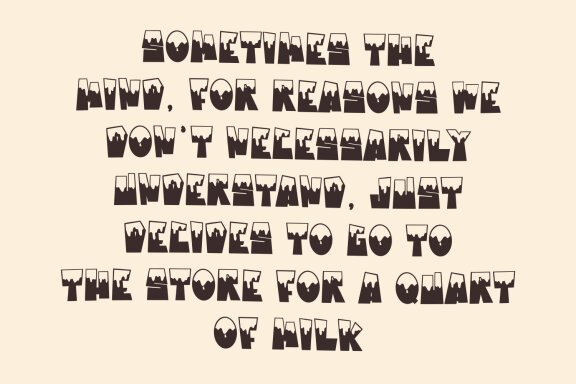 SOMETIMES THE
MIND, FOR REASONS WE
DON'T NECESSARILY
UNDERSTAND, JUST
DECIDES TO GO TO
THE STORE FOR A QUART
OF MILK